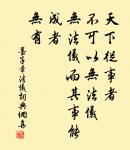 天下從事者
不可以無法儀
無法儀而其事能
成者
無有
墨子章法儀詞典網集